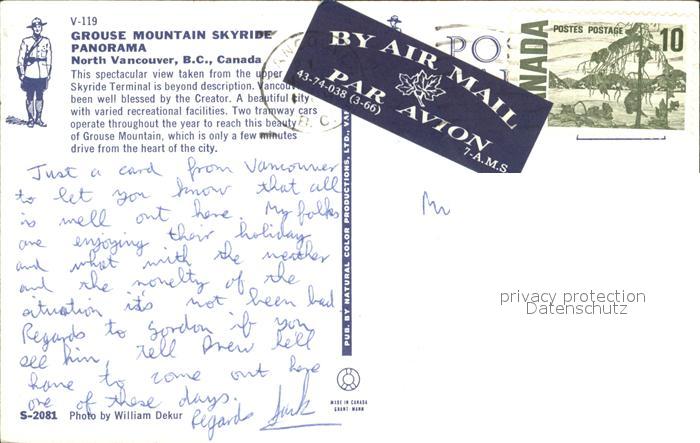 V-119
GROUSE MOUNTAIN SKYRIDE
PANORAMA
North Vancouver, B.C., Canada
This spectacular view taken from the upper
Skyride Terminal is beyond description.
been well blessed by the Creator. A beautiful city
with varied recreational facilities. Two tramway cars
operate throughout the year to reach this beauty
of Grouse Mountain, which is only a few minutes
drive from the heart of the city.
BY AIR MAIL
PAR AVION
43-74-038 (3-66)
7-A.M.S
CANADA
POSTES POSTAGE
10
Just a card from Vancouver
to let you know that all
is well out here. My folks
are enjoying their holiday
and what with the weather
and the novelty of the
situation it's not been bad
Regards to Gordon if you
see him, tell Drew he'll
have to come out here
one of these days.
Regards
S-2081 Photo by William Dekur
PUB. BY NATURAL COLOR PRODUCTIONS, LTD.,
MADE IN CANADA
GRANT-MANN
privacy protection
Datenschutz